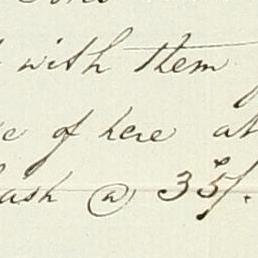 with them
of here at
ash @ 35/.